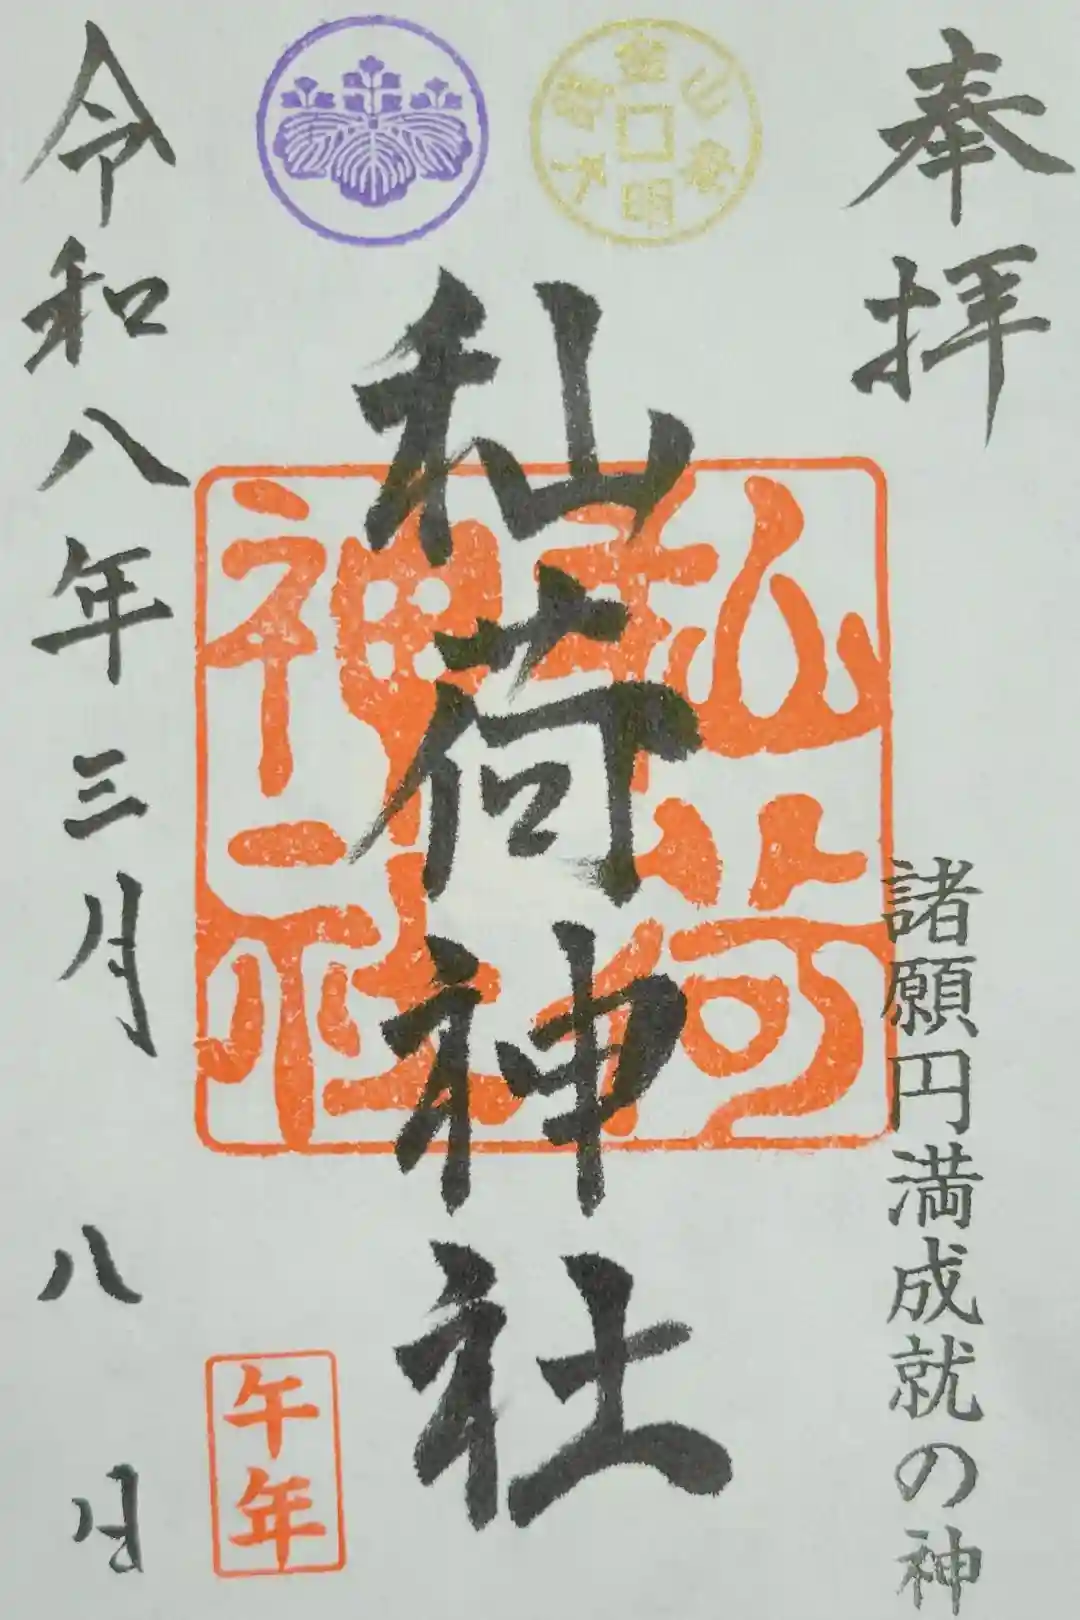 奉拝
諸願円満成就の神
秈荷神社
秈荷
神社
令和八年三月八日
午年